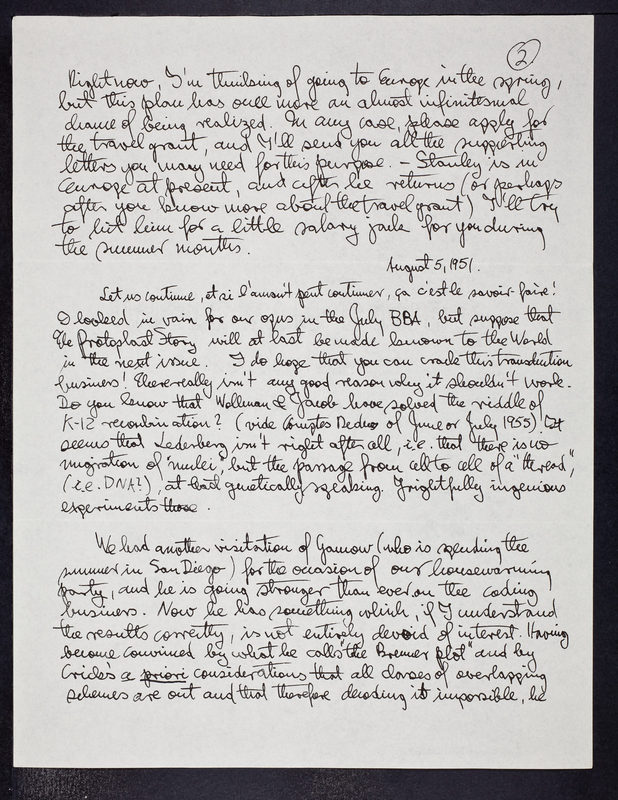 2
Right now, I'm thinking of going to Europe in the spring,
but this plan has once more an almost infinitesimal
chance of being realized. In any case, please apply for
the travel grant, and I'll send you all the supporting
letters you may need for this purpose. – Stanley is in
Europe at present, and after he returns (or perhaps
after you know more about the travel grant) I'll try
to hit him for a little salary jack for you during
the summer months.
August 5, 1951.
Let us continue, et si l'amour peut continuer, ça c'est le savoir-faire!
I looked in vain for our opus in the July BBA, but suppose that
the Protoplast Story will at last be made known to the World
in the next issue. I do hope that you can crack this transduction
business! There really isn't any good reason why it shouldn't work.
Do you know that Wollman & Jacob have solved the riddle of
K-12 recombination? (vide Comptes Rendus of June or July 1955). It
seems that Lederberg isn't right after all, i.e. that there is no
migration of "nuclei", but the passage from cell to cell of a "thread",
(i.e. DNA?), at least genetically speaking. Frightfully ingenious
experiments those.
We had another visitation of Gamow (who is spending the
summer in San Diego) for the occasion of our housewarming
party, and he is going stronger than ever on the coding
business. Now he has something which, if I understand
the results correctly, is not entirely devoid of interest. Having
become convinced by what he calls the "Brenner plot" and by
Crick's a priori considerations that all classes of overlapping
schemes are out and that therefore decoding is impossible, he